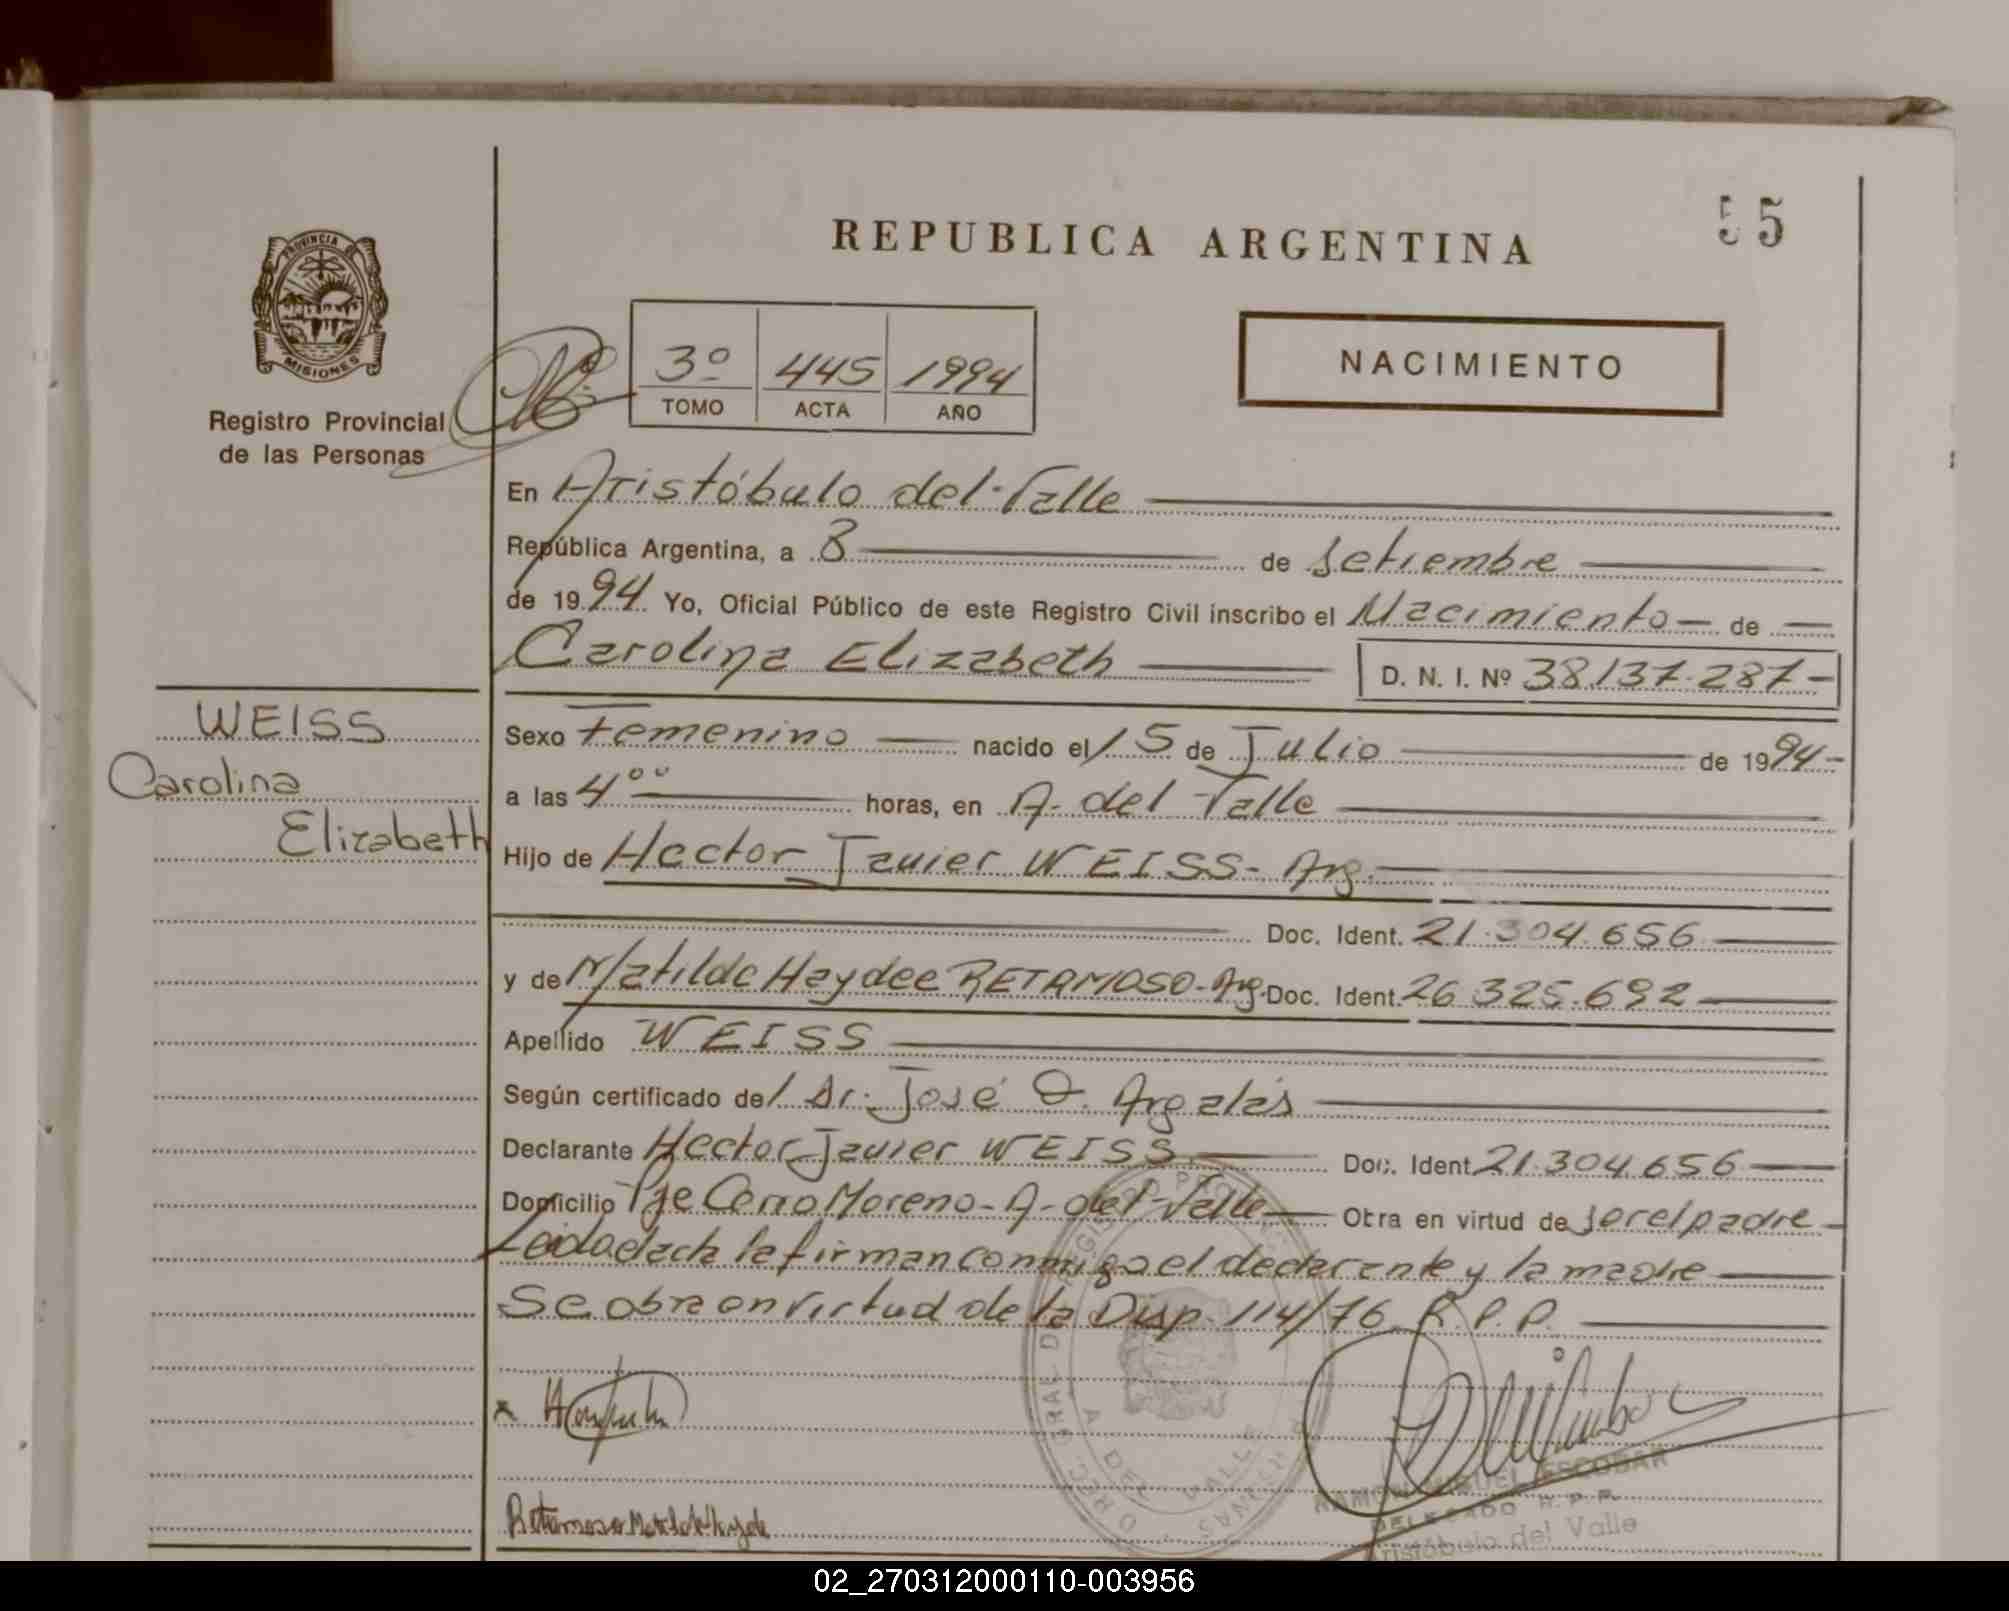 55
REPUBLICA ARGENTINA
PROVINCIA DE
MISIONES
Registro Provincial
de las Personas
3º 445 1994
TOMO ACTA AÑO
NACIMIENTO
En Aristóbulo del Valle
República Argentina, a 8 de setiembre
de 1994 Yo, Oficial Público de este Registro Civil inscribo el Nacimiento de
Carolina Elizabeth D. N. I. Nº 38.137.287
WEISS
Carolina
Elizabeth
Sexo Femenino nacido el 15 de Julio de 1994
a las 4°° horas, en A. del Valle
Hijo de Hector Javier WEISS - Arg.
Doc. Ident. 21.304.656
y de Matilde Haydee RETAMOSO - Arg. Doc. Ident. 26.325.692
Apellido WEISS
Según certificado del Dr. José O. Argalás
Declarante Hector Javier WEISS Doc. Ident. 21.304.656
Domicilio Pje Cerro Moreno - A. del Valle Obra en virtud de ser el padre
Leida el acta la firman conmigo el declarante y la madre
Se obra en virtud de la Disp. 114/76 R.P.P.
Retamoso Matilde Hayde
RAMON MIGUEL ESCOBAR
DELEGADO R.P.P.
Aristóbulo del Valle
02_270312000110-003956